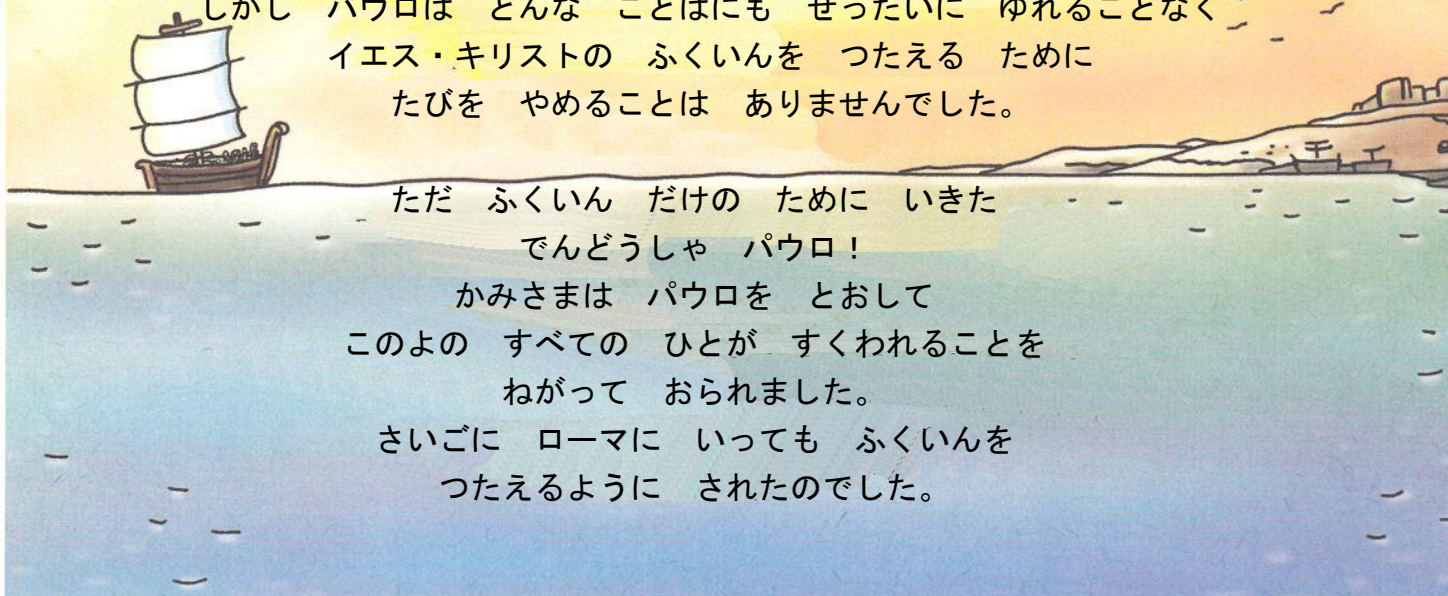 しかし　パウロは　どんな　ことばにも　ぜったいに　ゆれることなく
イエス・キリストの　ふくいんを　つたえる　ために
たびを　やめることは　ありませんでした。
ただ　ふくいん　だけの　ために　いきた
でんどうしゃ　パウロ！
かみさまは　パウロを　とおして
このよの　すべての　ひとが　すくわれることを
ねがって　おられました。
さいごに　ローマに　いっても　ふくいんを
つたえるように　されたのでした。